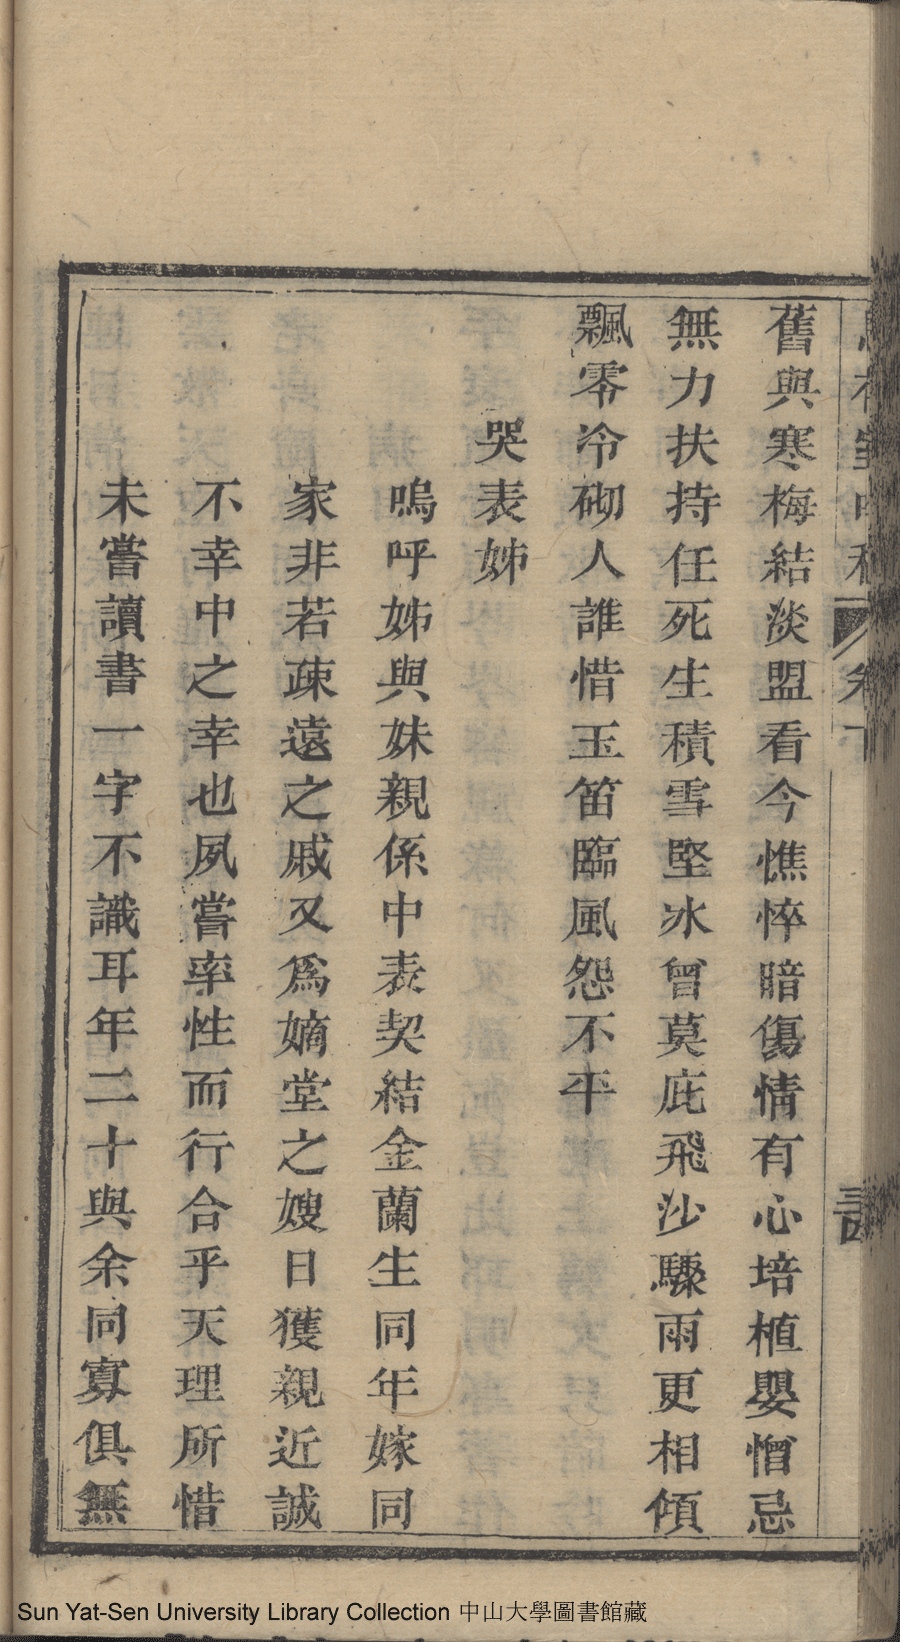 舊與寒梅結淡盟看今憔悴暗傷情有心培植嬰憎忌
無力扶持任死生積雪堅冰曾莫庇飛沙驟雨更相傾
飄零冷砌人誰惜玉笛臨風怨不平
哭表姊
嗚呼姊與妹親係中表契結金蘭生同年嫁同
家非若疎遠之戚又爲嫡堂之嫂日獲親近誠
不幸中之幸也夙嘗率性而行合乎天理所惜
未嘗讀書一字不識耳年二十與余同寡俱無
Sun Yat-Sen University Library Collection 中山大學圖書館藏